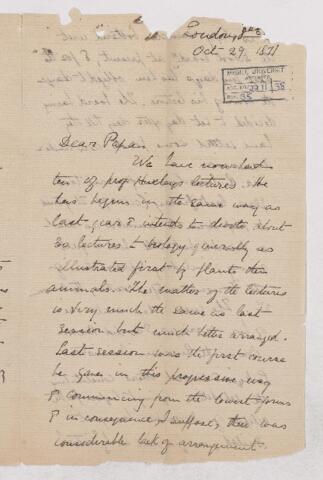 London,
Oct 29, 1871
McGILL UNIVERSITY
ARCHIVES
38
Dear Papa,
We have now had
ten of prof Huxleys lectures. He
has begun in the same way as
last year & intends to devote about
30 lectures to biology generally as
illustrated first by plants then
animals. The matter of the lectures
is very much the same as last
session but much better arranged.
Last session was the first course
he gave in this progressive way
& commencing from the lowest forms
& in consequence I suppose, there was
considerable lack of arrangement.